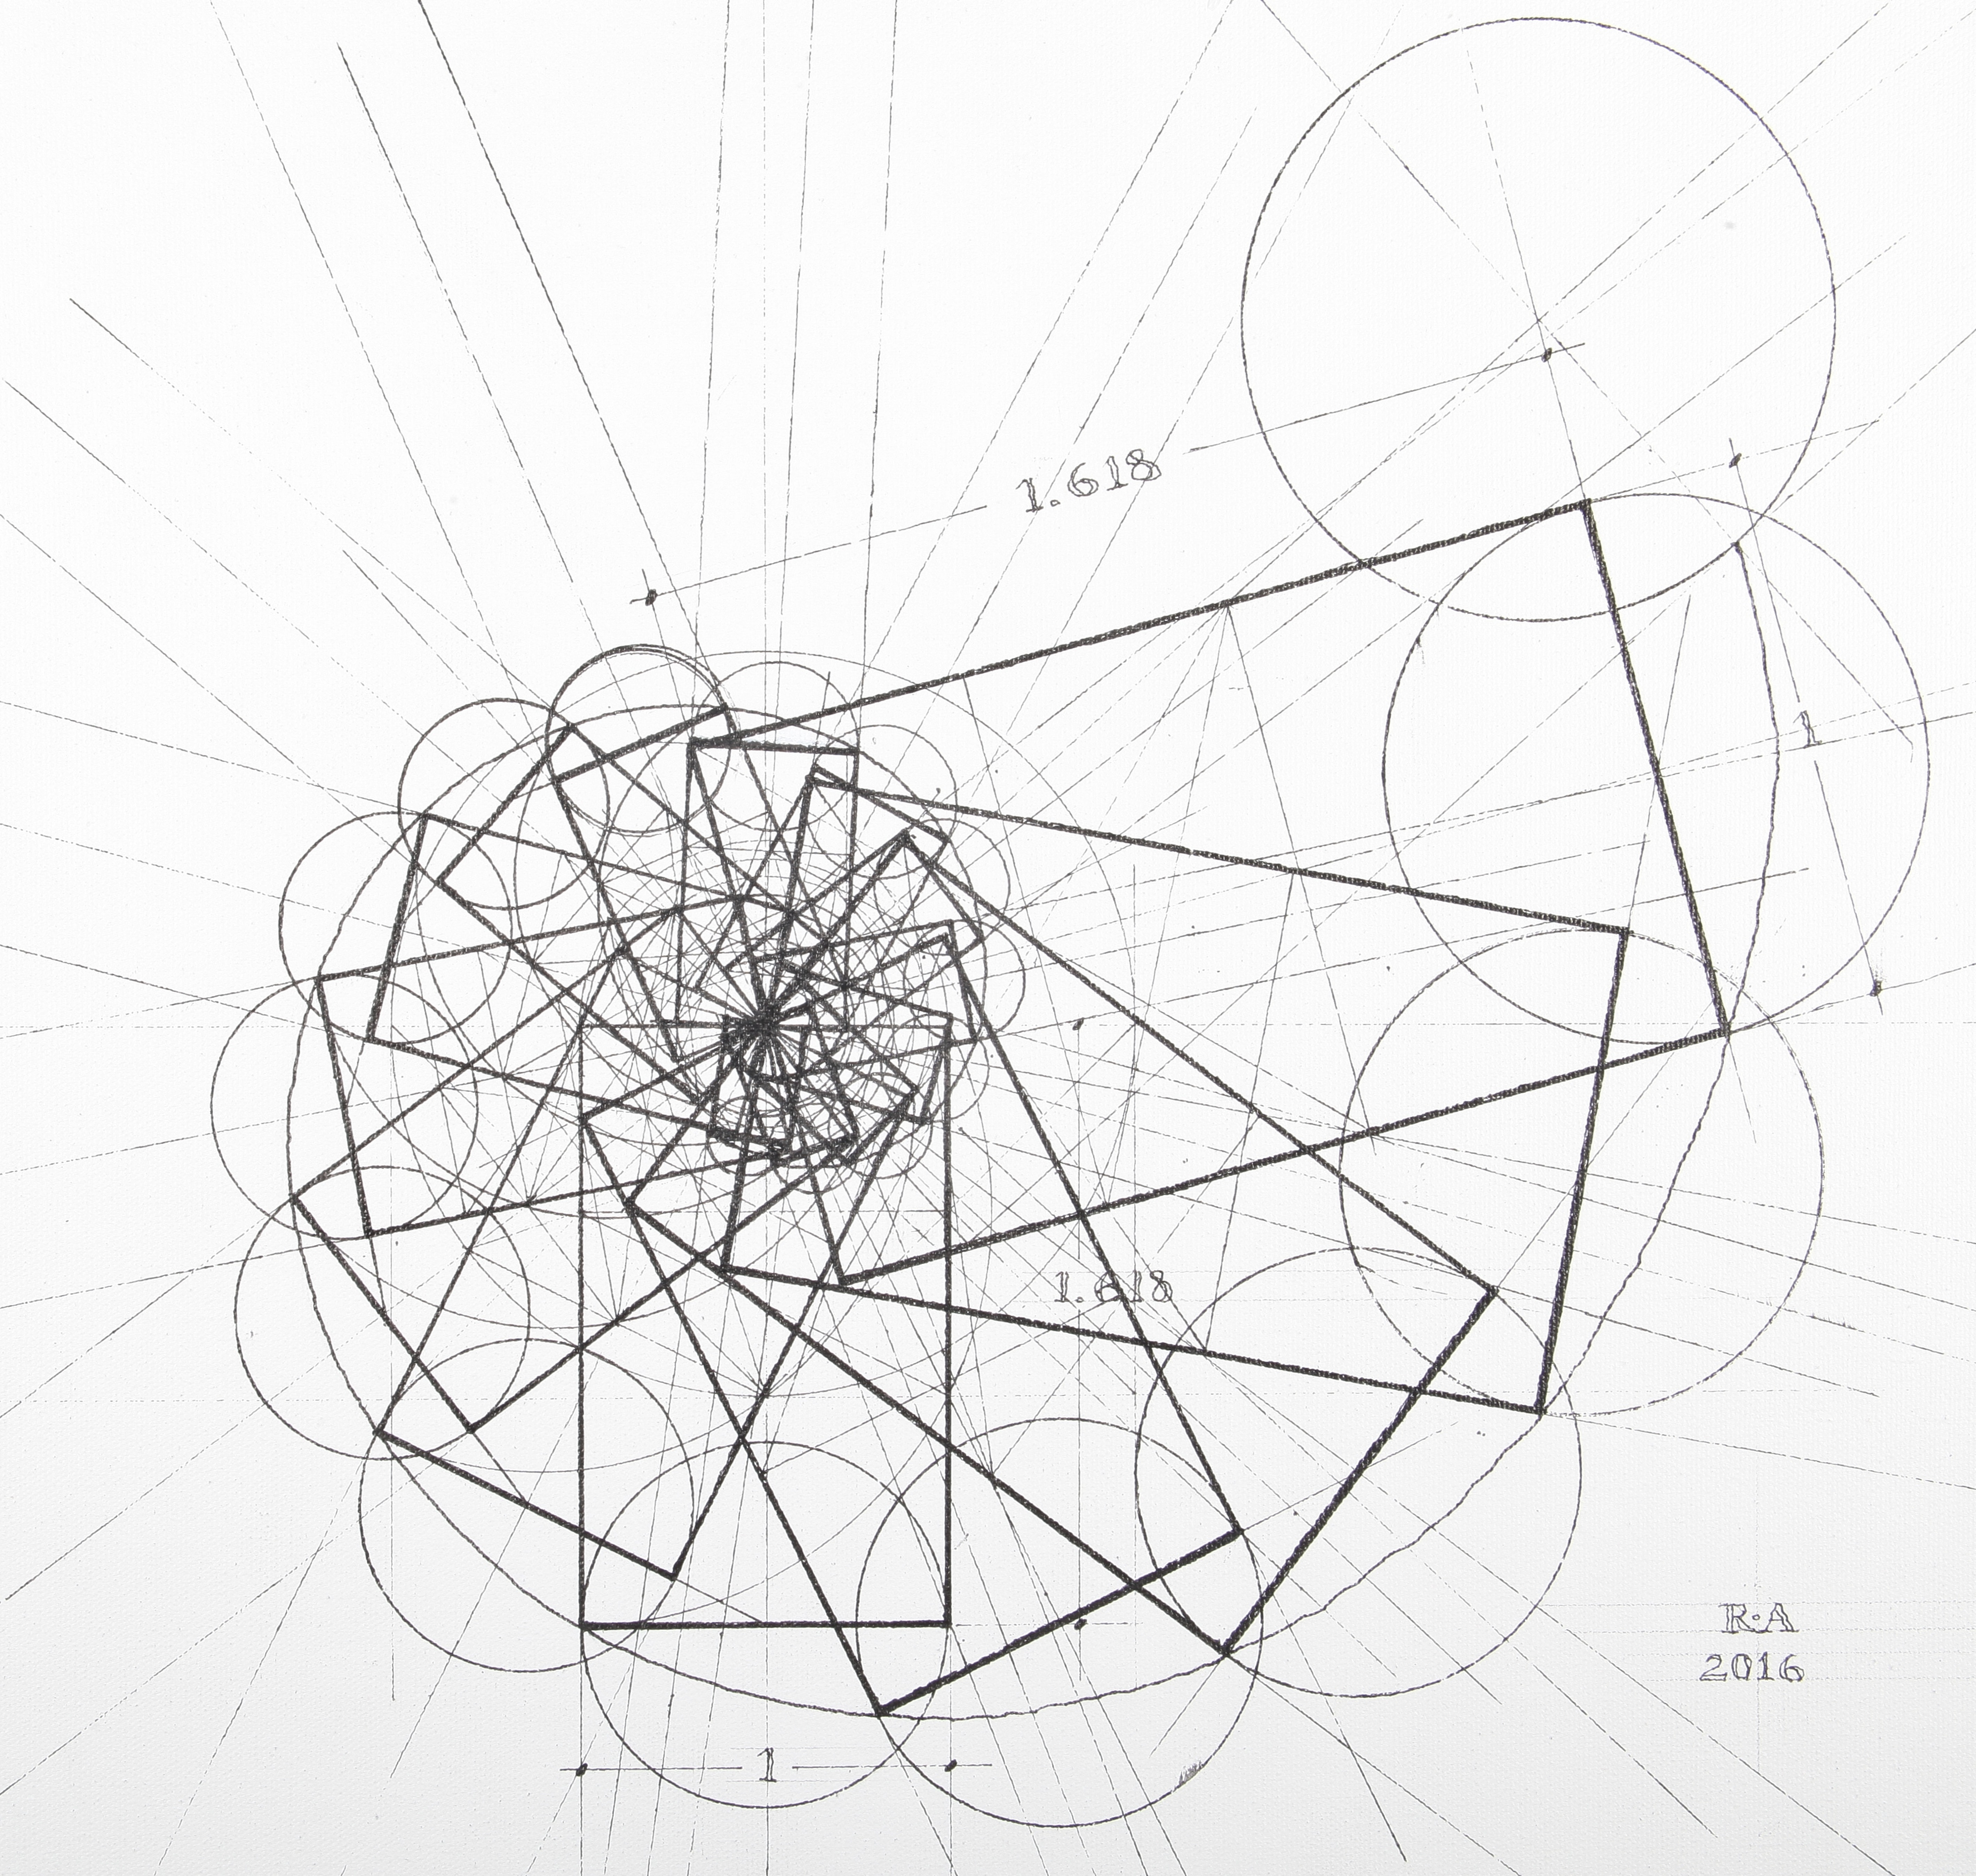 1.618
1
1.618
R.A
2016
1